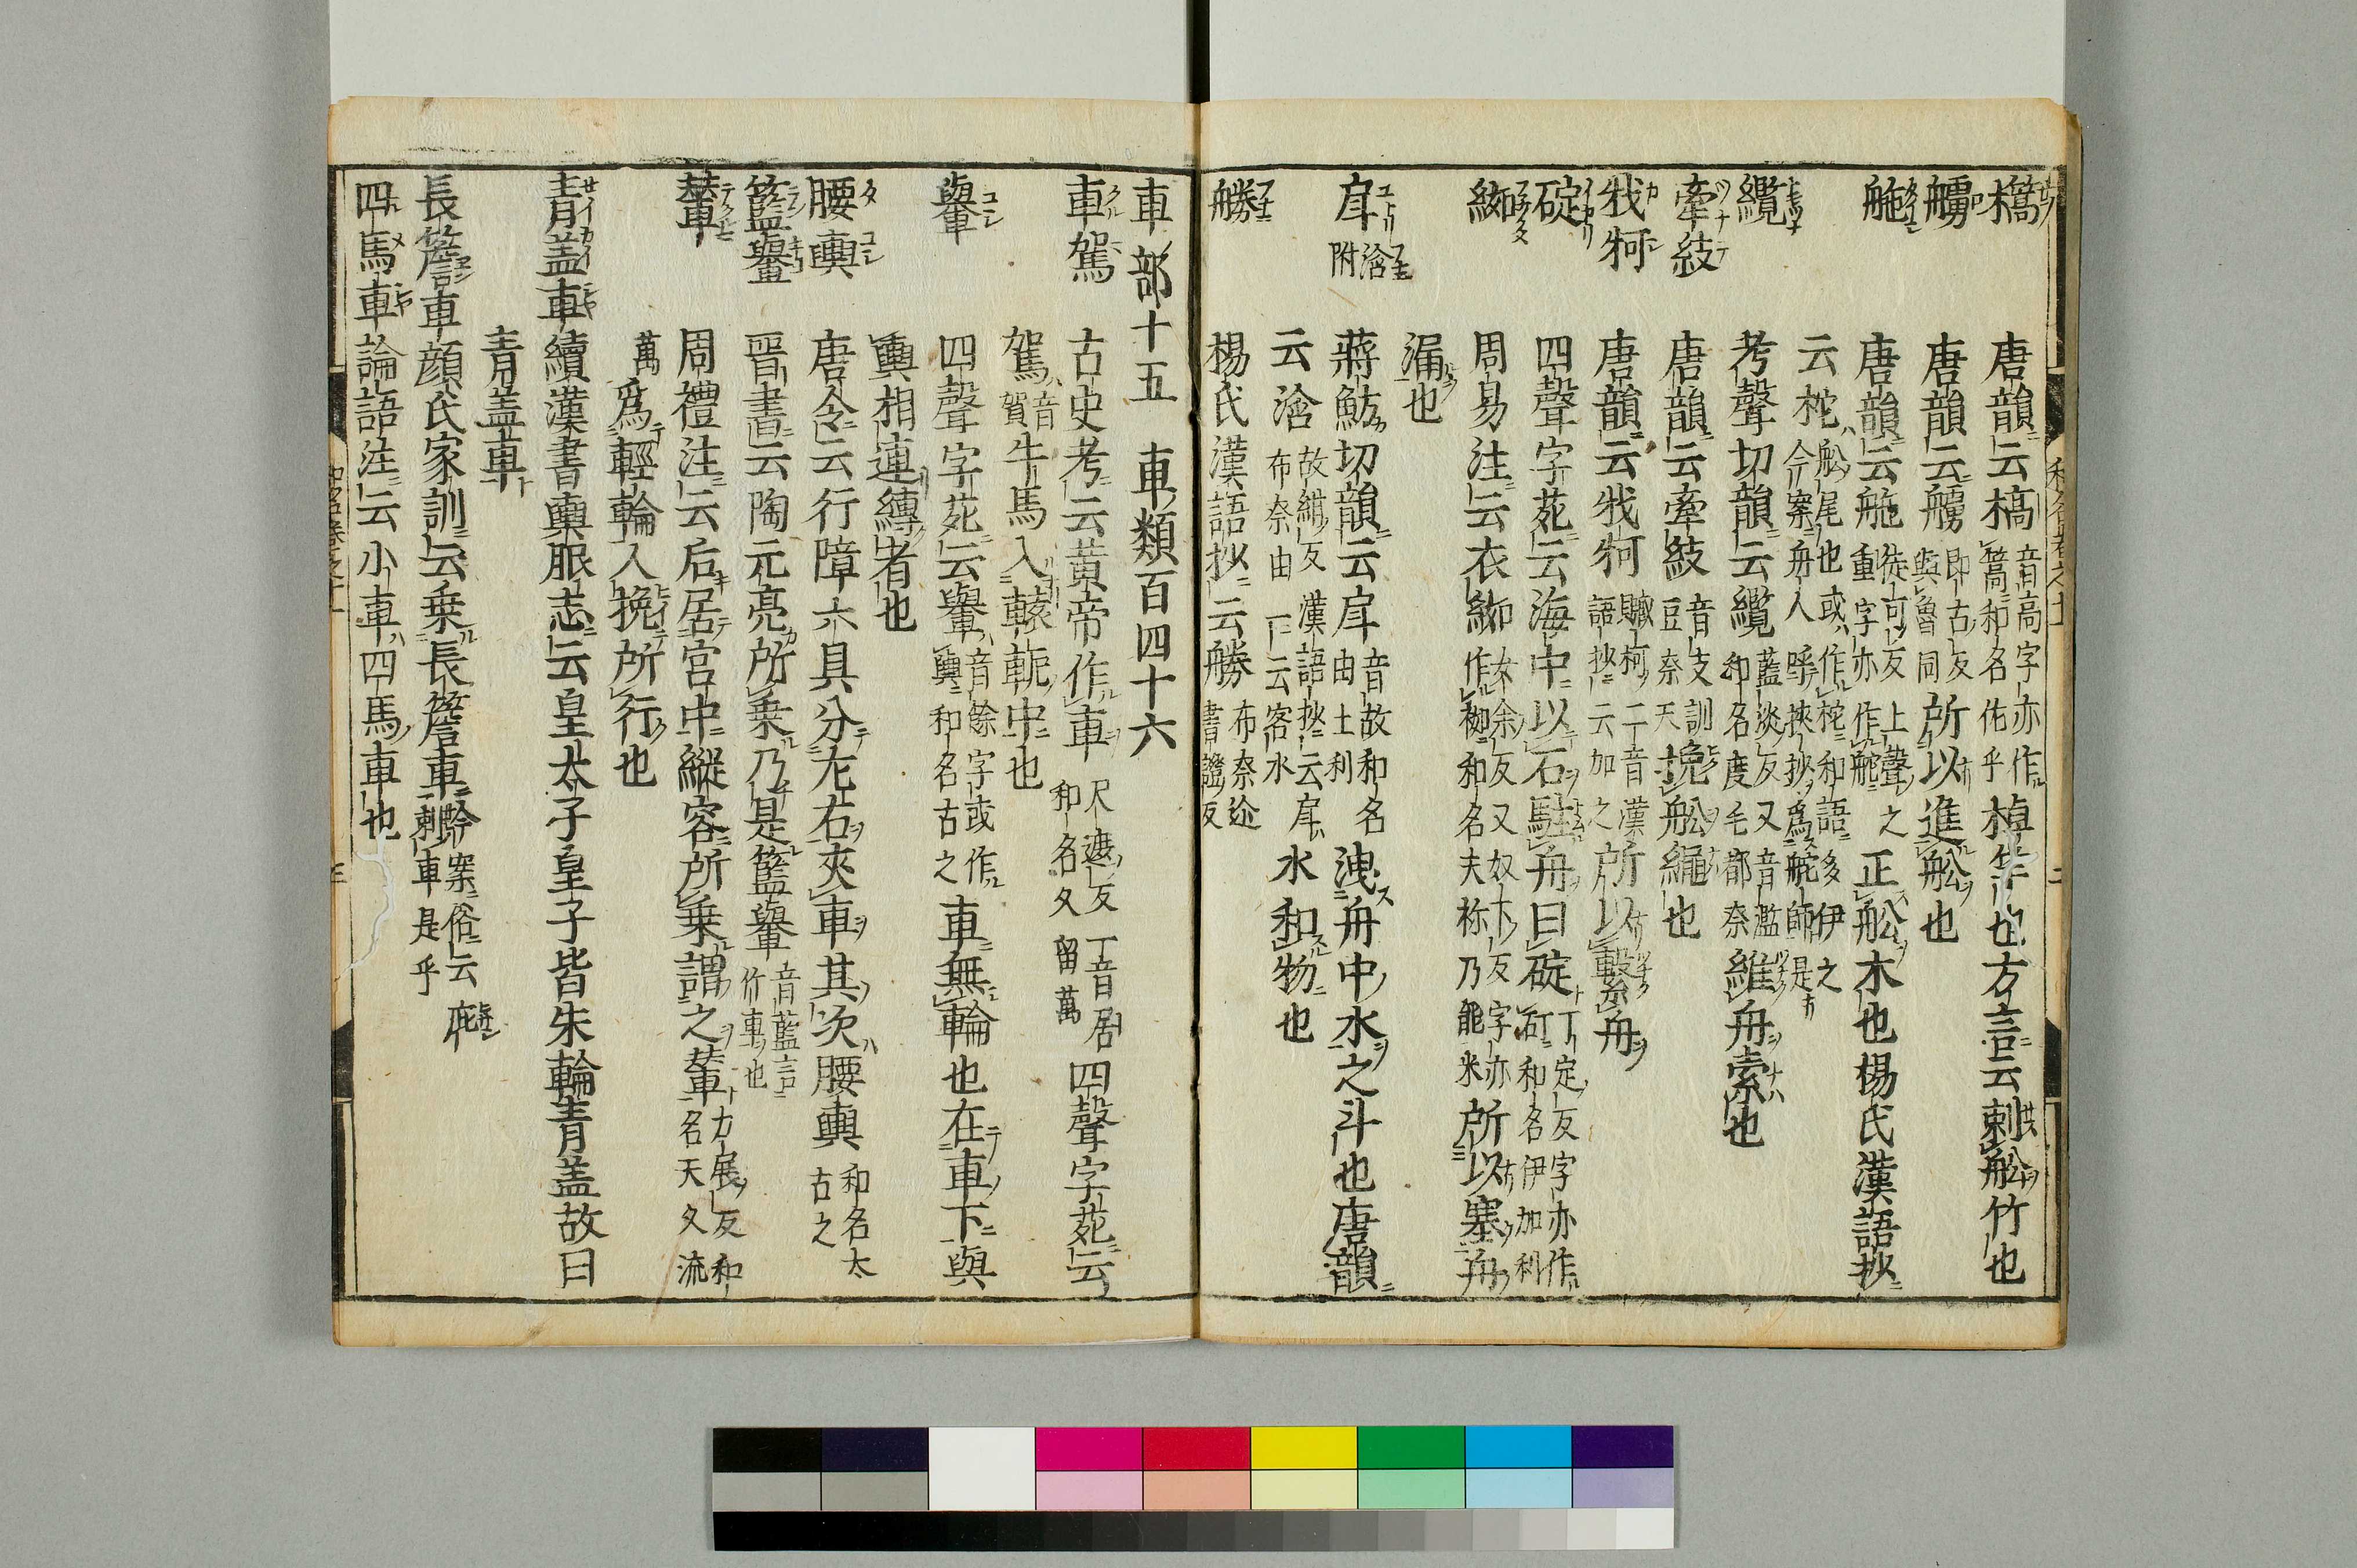 檣 唐韻云槁 音高字亦作𥴖和名佐乎 棹竿也方言云刺舩竹也
艣 唐韻云艣 即古反與魯同 所以進舩也
舵 唐韻云舵 徒可反上聲之重字亦作䑨 正舩木也楊氏漢語抄
云柁 舩尾也或作柁和語多伊之今案舟人呼挾抄爲舵師是
纜 考聲切韻云纜 藍淡反又音濫和名度毛都奈 維舟索也
牽紋 唐韻云牽紋 音支訓豆奈天 挽舩繩也
牂牁 唐韻云牂牁 臧柯二音漢語抄云加之 所以繫舟
碇 四聲字苑云海中以石駐舟曰碇 丁定反字亦作矴和名伊加利
袽 周易注云衣袽 女余反又奴下反字亦作𥿎和名夫袮乃能米 所以塞舟
漏也
戽 附浛 蔣魴切韻云戽 音故和名由土利 洩舟中水之斗也唐韻
云浛 故紺反漢語抄云戽布奈由下云客水 水和物也
艕 楊氏漢語抄云艕 布奈迩書證反
車部十五 車類百四十六
車 駕 古史考云黄帝作車 尺遮反一音居和名久留萬 四聲字苑云
駕 音賀 牛馬入轅軛中也
轝 四聲字苑云轝 音餘字或作輿和名古之 車無輪也在車下與
輿相連縛者也
腰輿 唐令云行障六具分左右夾車其次腰輿 和名太古之
籃轝 晋書云陶元亮所乗乃是籃轝 音藍言竹車也
輦 周禮注云后居宮中縱容所乗謂之輦 力展反和名天久流萬
爲輕輪人挽所行也
青盖車 續漢書輿服志云皇太子皇子皆朱輪青盖故曰
青盖車
長簷車 顔氏家訓云乗長簷車 簷案俗云庇刺車是乎
四馬車 論語注云小車四馬車也